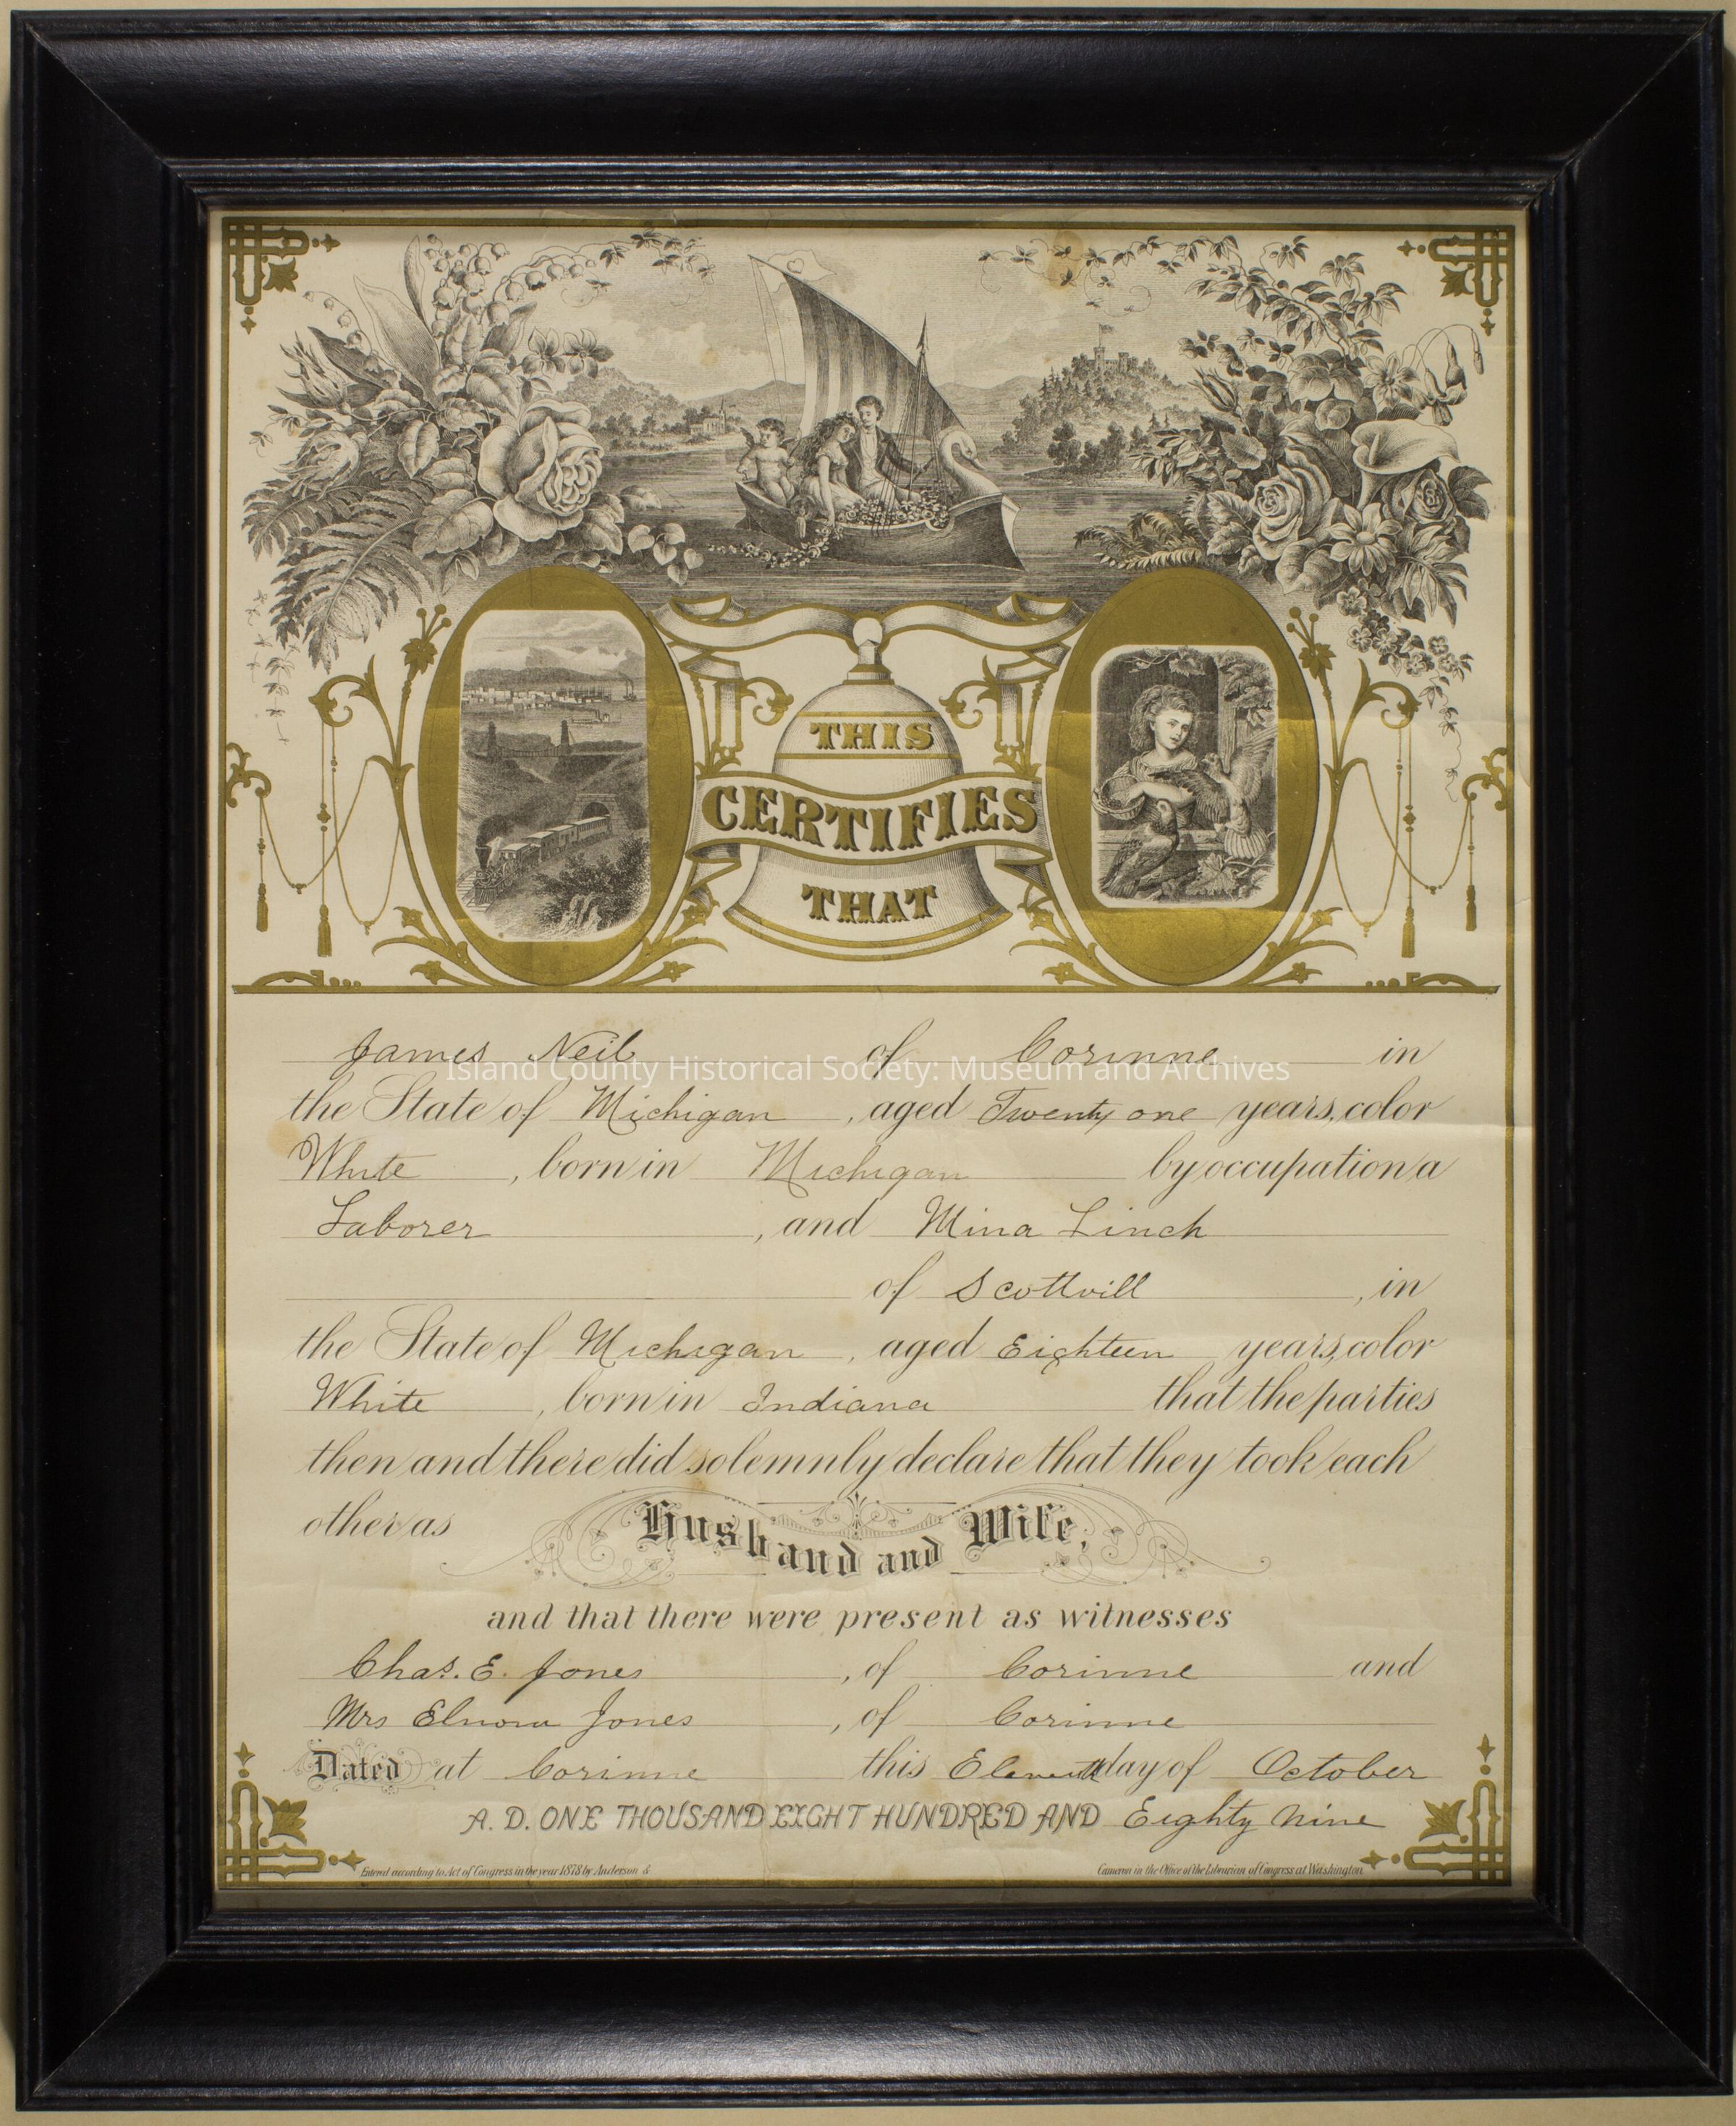 THIS
CERTIFIES
THAT
James Neil of Corinne in
Island County Historical Society: Museum and Archives
the State of Michigan, aged Twenty one years, color
White, born in Michigan by occupation a
Laborer, and Mina Linch
of Scottvill, in
the State of Michigan, aged Eighteen years, color
White, born in Indiana that the parties
then and there did solemnly declare that they took each
other as Husband and Wife,
and that there were present as witnesses
Chas. E. Jones, of Corinne and
Mrs Elnora Jones, of Corinne
Dated at Corinne this Eleventh day of October
A. D. ONE THOUSAND EIGHT HUNDRED AND Eighty Nine
Entered according to Act of Congress in the year 1878 by Anderson & Cameron in the Office of the Librarian of Congress at Washington